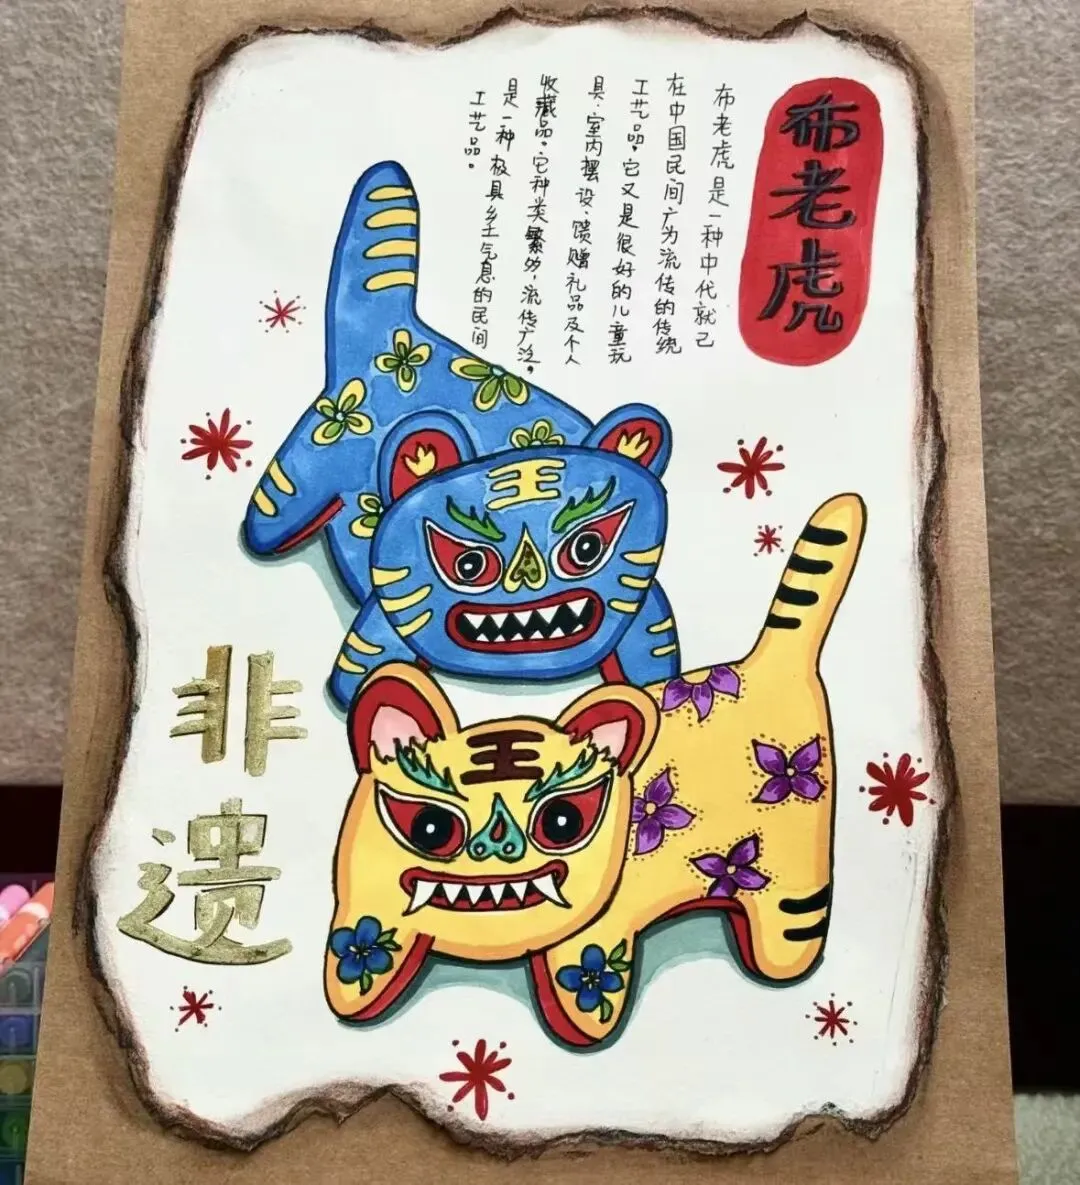 布老虎
布老虎是一种中代就已
在中国民间广为流传的传统
工艺品。它又是很好的儿童玩
具、室内摆设、馈赠礼品及个人
收藏品。它种类繁多，流传广泛，
是一种极具乡土气息的民间
工艺品。
王
王
非遗